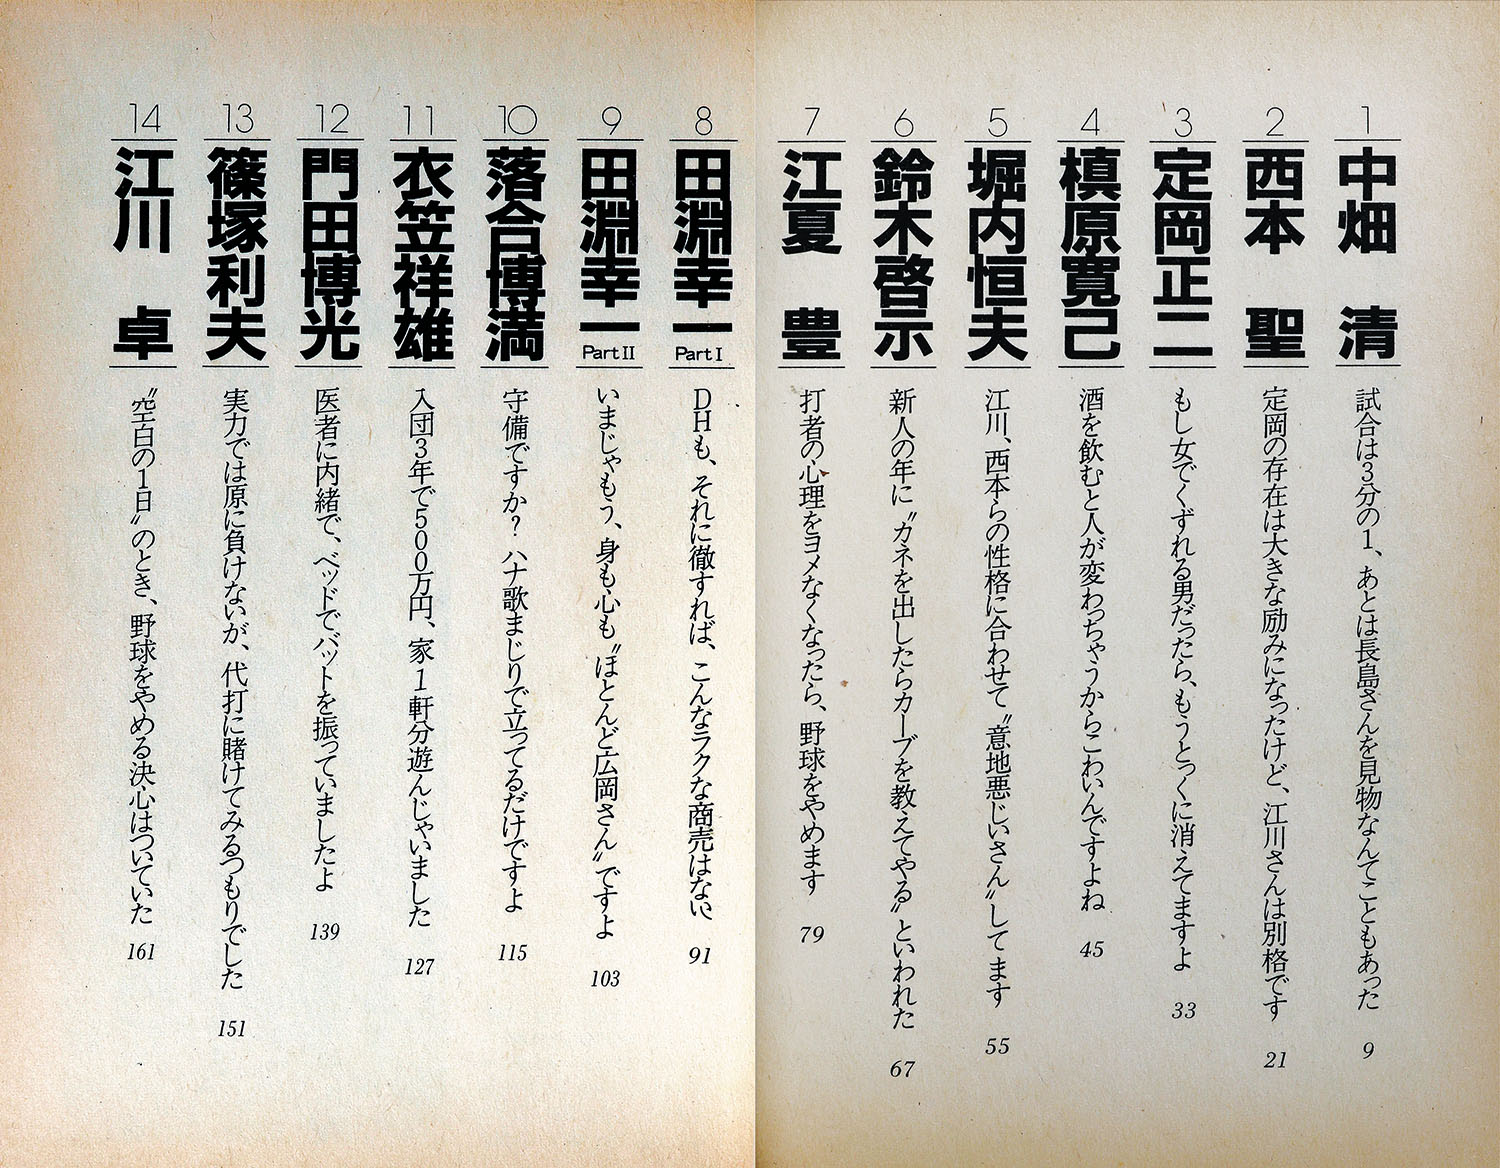 1
中畑 清
試合は3分の1、あとは長島さんを見物なんてこともあった
9
2
西本 聖
定岡の存在は大きな励みになったけど、江川さんは別格です
21
3
定岡正二
もし女でくずれる男だったら、もうとっくに消えてますよ
33
4
槙原寛己
酒を飲むと人が変わっちゃうからこわいんですよね
45
5
堀内恒夫
江川、西本らの性格に合わせて〝意地悪じいさん〟してます
55
6
鈴木啓示
新人の年に〝カネを出したらカーブを教えてやる〟といわれた
67
7
江夏 豊
打者の心理をヨメなくなったら、野球をやめます
79
8
田淵幸一
Part I
DHも、それに徹すれば、こんなラクな商売はない
91
9
田淵幸一
Part II
いまじゃもう、身も心も〝ほとんど広岡さん〟ですよ
103
10
落合博満
守備ですか? ハナ歌まじりで立ってるだけですよ
115
11
衣笠祥雄
入団3年で500万円、家1軒分遊んじゃいました
127
12
門田博光
医者に内緒で、ベッドでバットを振っていましたよ
139
13
篠塚利夫
実力では原に負けないが、代打に賭けてみるつもりでした
151
14
江川 卓
〝空白の1日〟のとき、野球をやめる決心はついていた
161